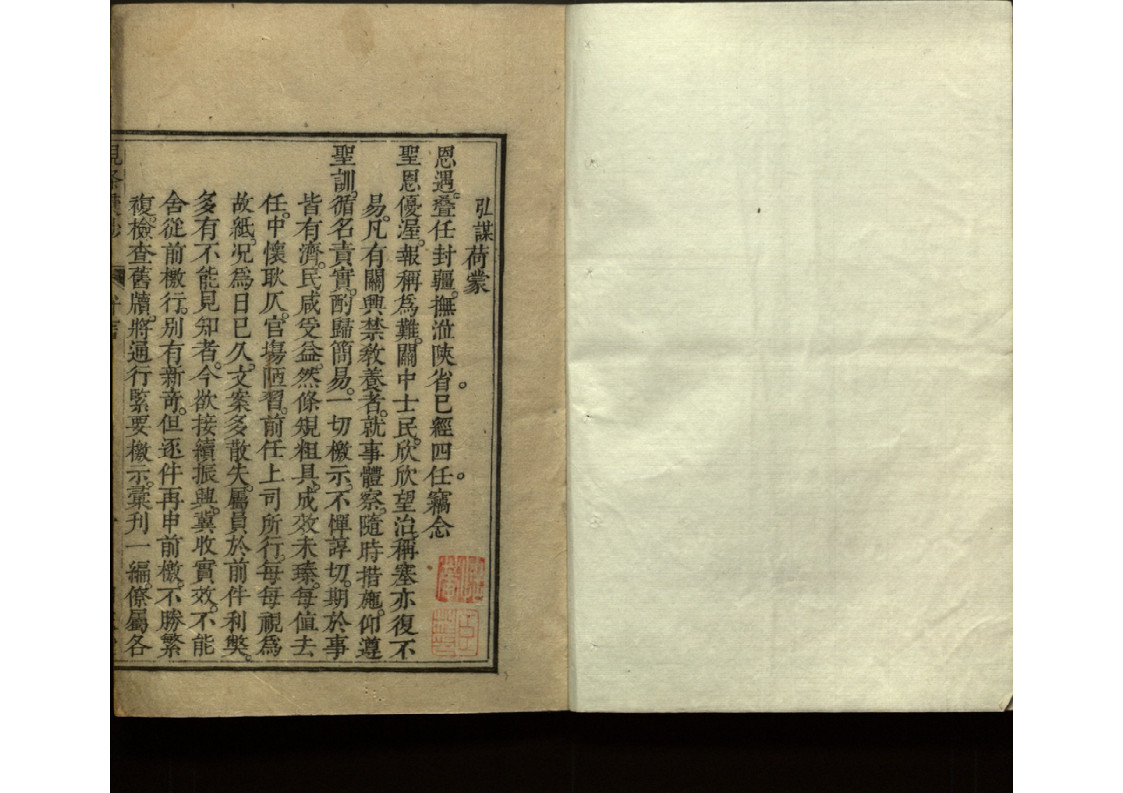 弘謀荷蒙
恩遇。叠任封疆。撫涖陝省。已經四任。竊念
聖恩優渥。報稱爲難。關中士民。欣欣望治。稱塞亦復不
易。凡有關興禁教養者。就事體察。隨時措施。仰遵
聖訓。循名責實。酌歸簡易。一切檄示。不憚諄切。期於事
皆有濟。民咸受益。然條䂓粗具。成效未臻。每值去
任。中懷耿仄。官塲陋習。前任上司所行。每每視爲
故紙。况爲日已久。文案多散失。屬員於前件利獘。
多有不能見知者。今欲接續振興。冀收實效。不能
舍從前檄行。別有新竒。但逐件再申前檄。不勝繁
複。檢查舊牘。將通行緊要檄示。彙刊一編。僚屬各